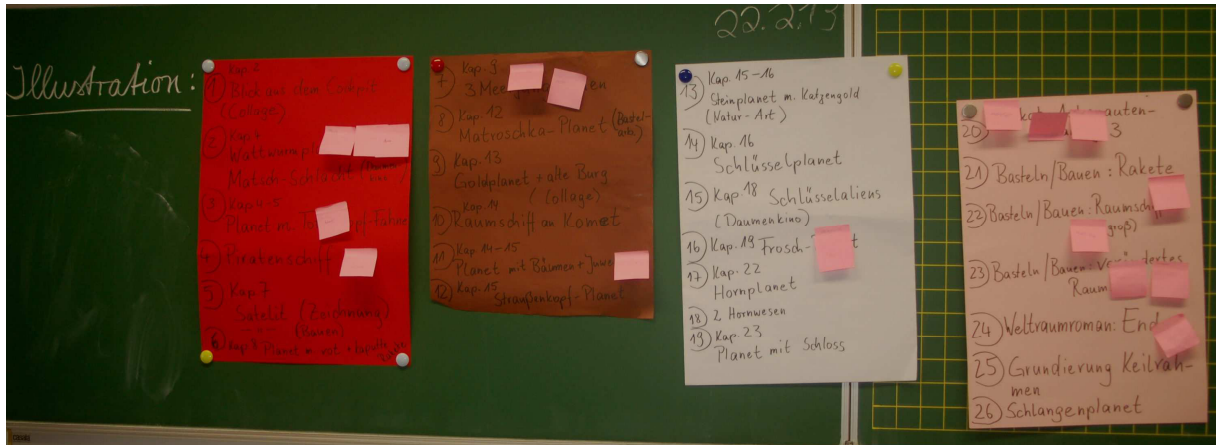 22.2.13
Illustration:
1 Kap. 2
Blick aus dem Cockpit
(Collage)
2 Kap. 4
Wattwurmpl
Matsch-Schlacht
3 Kap. 4-5
Planet m. To pf-Fahne
4 Piratenschiff
5 Kap. 7
Satelit (Zeichnung)
(Bauen)
6 Kap. 8 Planet m. rot + kaputte
7 Kap. 9
3 Mee en
8 Kap. 12
Matroschka-Planet (Bastel-
arb.)
9 Kap. 13
Goldplanet + alte Burg
(Collage)
Kap. 14
10 Raumschiff an Komet
11 Kap. 14-15
Planet mit Bäumen + Juwe
12 Kap. 15
Straußenkopf-Planet
13 Kap. 15-16
Steinplanet m. Katzengold
(Natur-Art)
14 Kap. 16
Schlüsselplanet
15 Kap. 18 Schlüsselaliens
(Daumenkino)
16 Kap. 19 Frosch- t
17 Kap. 22
Hornplanet
18 2 Hornwesen
19 Kap. 23
Planet mit Schloss
20 auten-
3
21 Basteln/Bauen: Rakete
22 Basteln/Bauen: Raumschif
groß)
23 Basteln/Bauen: verändertes
Raum
24 Weltraumroman: End
25 Grundierung Keilrah-
men
26 Schlangenplanet